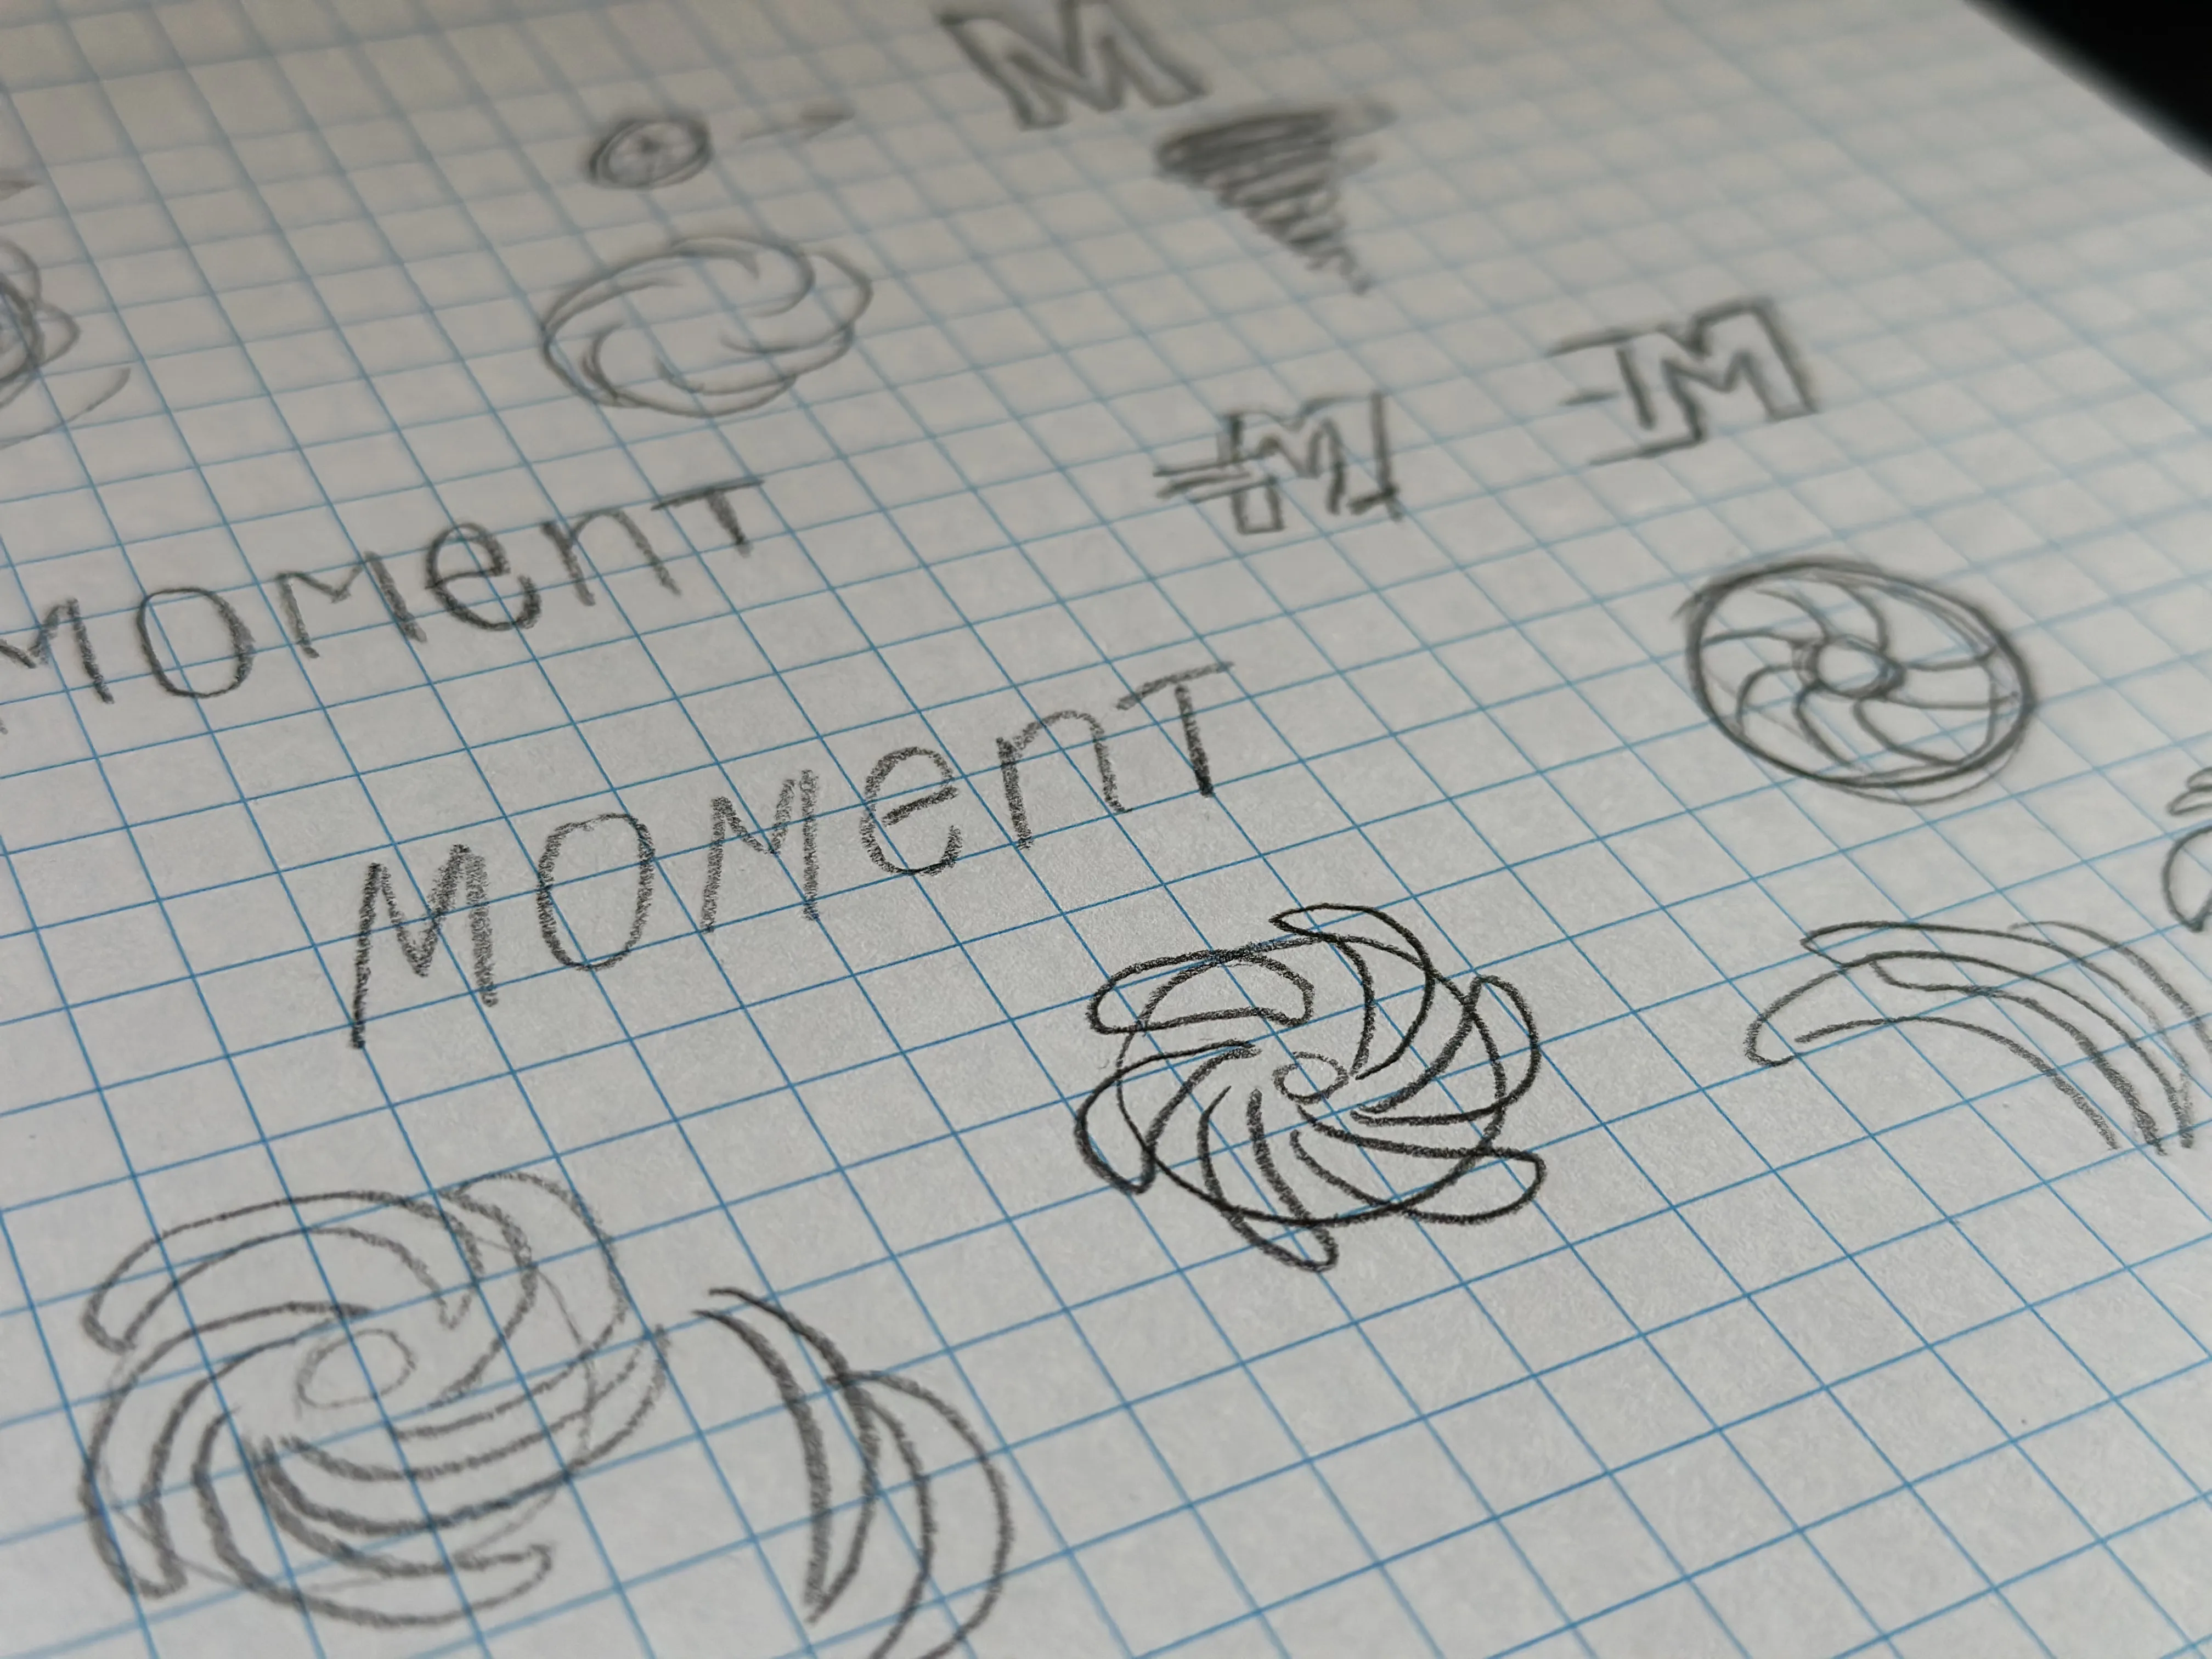 M
M
M
MOMenT
MOMenT